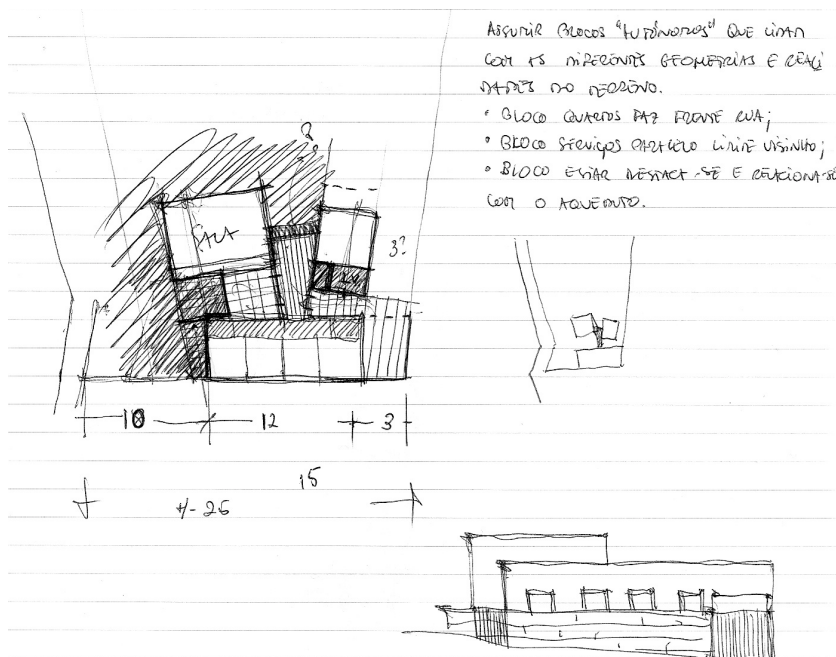 ASSUMIR BLOCOS "AUTÓNOMOS" QUE LIDAM
COM AS DIFERENTES GEOMETRIAS E REALI
DADES DO TERRENO.
• BLOCO QUARTOS FAZ FRENTE RUA;
• BLOCO SERVIÇOS PARALELO LIMITE VISINHO;
• BLOCO ESTAR DESTACA-SE E RELACIONA-SE
COM O AQUEDUTO.
SALA
3?
10
12
3
15
+/- 25